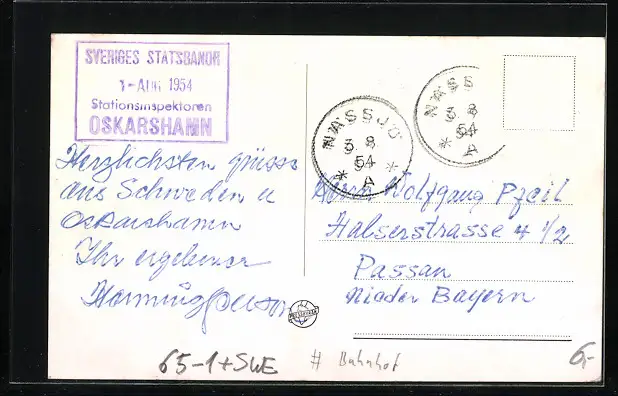 SVERIGES STATSBANOR
1-AUG 1954
Stationsinspektoren
OSKARSHAMN
Herzlichsten grüsse
aus Schweden u
Oskarshamn
Ihr ergebener
NÄSSJÖ
3 8
54
* A *
NÄSS
3 8
54
* A
Herrn Wolfgang Pzeil
Halserstrasse 4 1/2
Passau
Niader Bayern
65-1+SWE
# Bahnhof
6,-